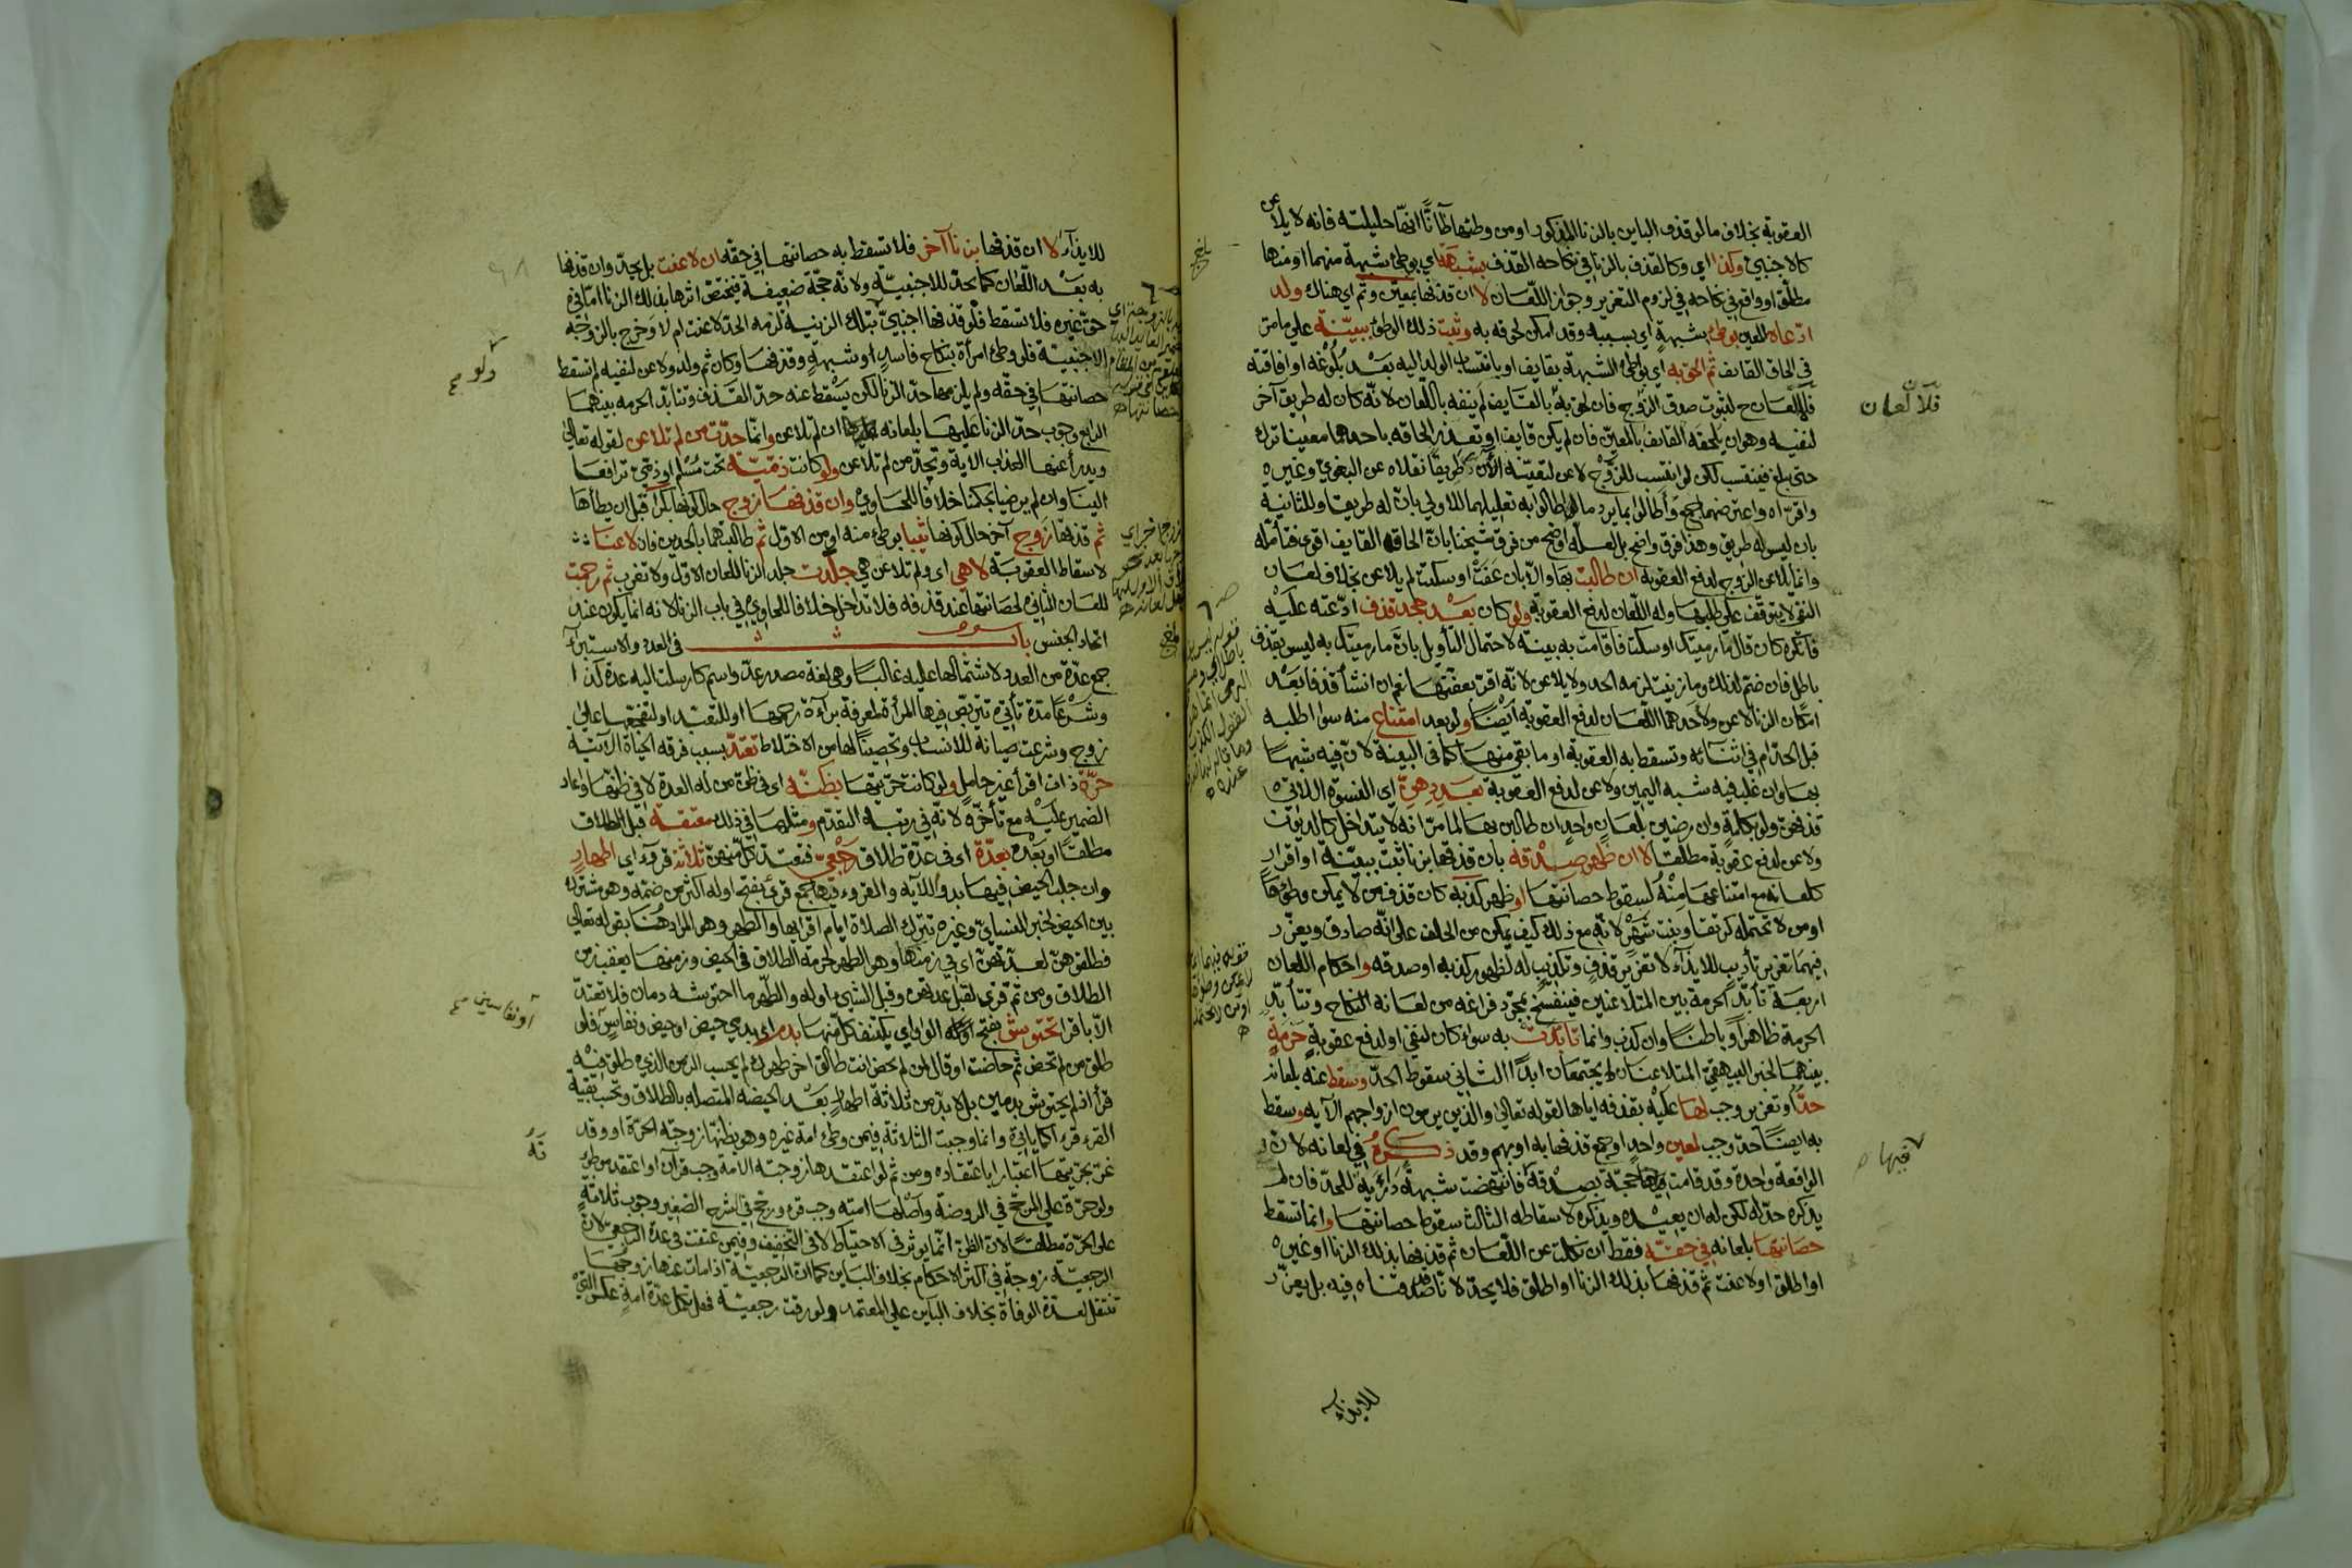 العقوبة بخلاف ما لو قذف الباين بالزنا المذكور او من وطئها ظانًّا انها حليلته فانه لا يلاعن
كالاجنبي وكذا اي وكالقذف بالزنا في نكاحه القذف بشبهة اي بوطئ شبهة منهما او منها
مطلق او واقع في نكاحه في لزوم التعزير وجواز اللعان لا ان قذفها بمعين وثم اي هناك ولد
ادعاه المعين بوطئ بشبهة اي بسببه وقد امكن لحوقه به وثبت ذلك الوطئ ببينة على ما مر
في الحاق القايف ثم الحق به اي بوطئ الشبهة بقايف او بانتساب الولد اليه بعد بلوغه او افاقته
فلا لعان ح لثبوت صدق الزوج فان لحق به بالقايف لم ينفه باللعان لانه كان له طريق آخر
لنفيه وهو ان يلحقه القايف بالمعين فان لم يكن قايف او تعذر الحاقه باحدهما معينا ترك
حتى يبلغ فينتسب لكن لو انتسب للزوج لاعن لنفيه الآن طريقا نقلاه عن البغوي وغيره
واقراه واعترضهما جمع واطالوا بما يرد ما اطالوا به تعليلهما للاولى بان له طريقا وللثانية
بان ليس له طريق وهذا فرق واضح بل لعله اوضح من فرق شيخنا بان الحاق القايف اقوى فتأمله
وانما يلاعن الزوج لدفع العقوبة ان طالبت بها والا بان عفت او سكتت لم يلاعن بخلاف لعان
النفي لا يتوقف على طلبها وله اللعان لدفع العقوبة ولو كان بعد جحد قذف ادعته عليه
فانكره كان قال ما رميتك او سكت فاقامت به بينة لاحتمال التأويل بان ما رميتك به ليس بقذف
باطل فان ضم لذلك وما زنيت لزمه الحد ولا يلاعن لانه اقر بعفتها نعم ان انشأ قذفا بعد
امكان الزنا لاعن ولاحدهما اللعان لدفع العقوبة ايضا ولو بعد امتناع منه سوا طلبه
قبل الحد ام في اثنائه وتسقط به العقوبة او ما بقي منها كما في البينة لان فيه شبها
بها وان غلب فيه شبه اليمين ولاعن لدفع العقوبة بعددهن اي النسوة اللاتي
قذفهن ولو بكلمة وان رضين بلعان واحد ان طالبن بها لما مر انه لا يتداخل كالديون
ولاعن لدفع عقوبة مطلقا لا ان ظهر صدقه بان قذفها بزنا ثبت ببينة او اقرار
كلعانه مع امتناعها منه لسقوط حصانتها او ظهر كذبه كان قذف من لا يمكن وطؤها
او من لا تحتمله كرتقا وبنت شهر لانه مع ذلك كيف يمكن من الحلف على انه صادق ويعزر
فيهما تعزير تأديب للايذاء لا تعزير قذف وتكذيب له لظهور كذبه او صدقه واحكام اللعان
اربعة تأبد الحرمة بين المتلاعنين فينفسخ بمجرد فراغه من لعانه النكاح وتتأبد
الحرمة ظاهرا وباطنا وان كذب وانما تأبدت به سواء كان لنفي او لدفع عقوبة حرمة
بينهما لخبر البيهقي المتلاعنان لا يجتمعان ابدا الثاني سقوط الحد وسقط عنه بلعانه
حد او تعزير وجب لها عليه بقذفه اياها لقوله تعالى والذين يرمون ازواجهم الآيه وسقط
به ايضا حد وجب لمعين واحد او جمع قذفها به او بهم وقد ذكره في لعانه لان
الواقعة واحدة وقد قامت فيها حجة بصدقه فانتهضت شبهة دارية للحد فان لم
يذكره حد له لكن له ان يعيده ويذكره لاسقاطه الثالث سقوط حصانتها وانما تسقط
حصانتها بلعانه في حقه فقط ان نكلت عن اللعان ثم قذفها بذلك الزنا او غيره
او اطلق او لاعنت ثم قذفها بذلك الزنا او اطلق فلا يحد لانا صدقناه فيه بل يعزر
للايذاء
فلا لعان
فيها
للايذاء لا ان قذفها بزنا آخر فلا تسقط به حصانتها في حقه ان لاعنت بل يحد وان قذفها
به بعد اللعان كما يحد للاجنبية ولانه حجة ضعيفة فيختص اثرها بذلك الزنا اما في
حق غيره فلا تسقط فلو قذفها اجنبي بتلك الزنية لزمه الحد لاعنت ام لا وخرج بالزوجة
الاجنبية فلو وطئ امرأة بنكاح فاسد او شبهة وقذفها وكان ثم ولد ولاعن لنفيه لم تسقط
حصانتها في حقه ولم يلزمها حد الزنا لكن يسقط عنه حد القذف وتتأبد الحرمة بينهما
الرابع وجوب حد الزنا عليها بلعانه ان لم تلاعن وانما حدت من لم تلاعن لقوله تعالى
ويدرأ عنها العذاب الآية وتحد من لم تلاعن ولو كانت ذمية تحت مسلم او ذمي ترافعا
الينا وان لم يرضيا بحكمنا خلافا للحاوي وان قذفها زوج حال كونها بكرا قبل ان يطأها
ثم قذفها زوج آخر حال كونها ثيبا بوطئ منه او من الاول ثم طالبتهما بالحدين فان لاعنا
لاسقاط العقوبة لا هي اي ولم تلاعن هي جلدت جلد الزنا للعان الاول ولا تغرب ثم رجمت
للعان الثاني لحصانتها عند قذفه فلا تداخل خلافا للحاوي في باب الزنا لانه انما يكون عند
اتحاد الجنس باب في العدد والاستبراء
جمع عدة من العدد لاشتمالها عليه غالبا وهي لغة مصدر عد واسم كارسلت اليه عدة كذا
وشرعا مدة تأتي تتربص فيها المرأة لمعرفة براءة رحمها او للتعبد او لتفجعها على
زوج وشرعت صيانة للانساب وتحصينا لها من الاختلاط تعتد بسبب فرقة الحياة الآتية
حرة ذات اقرأ غير حامل ولو كانت حريتها بظنه اي في ظن من له العدة لا في ظنها واعاد
الضمير عليه مع تأخره لانه في رتبة التقدم ومثلها في ذلك معتقة قبل الطلاق
مطلقا او بعده بعدة اي في عدة طلاق رجعي فتعتد كل منهن ثلاثة قروء اي اطهار
وان جلب الحيض فيها بدواء للآيه والقروء فيها جمع قرء بفتح اوله اكثر من ضمه وهو مشترك
بين الحيض لخبر النسائي وغيره تترك الصلاة ايام اقرايها والطهر وهو المراد هنا بقوله تعالى
فطلقوهن لعدتهن اي في زمنها وهو الطهر لحرمة الطلاق في الحيض وزمنها يعقب زمن
الطلاق ومن ثم قرئ لقبل عدتهن وقبل الشيء اوله والطهر ما احتوشه دمان فلا تعتد
الا باقرا تحتوش بفتح الواو اي يكتنف كل منها بدم اي بدمي حيض او حيض ونفاس فلو
طلق من لم تحض ثم حاضت او قال لمن لم تحض انت طالق آخر طهرك لم يحسب الزمن الذي طلق فيه
قرأ اذ لم يحتوش بدمين بل لا بد من ثلاثة اطهار بعد الحيضة المتصلة بالطلاق وتحسب بقية
القرء قرء كما ياتي وانما وجبت الثلاثة فيمن وطئ امة غيره وهو يظنها زوجته الحرة او وقد
غر بحريتها اعتبارا باعتقاده ومن ثم لو اعتقدها زوجته الامة وجب قرآن او امته فقرء
ولو حرة على المرجح في الروضة واصلها امته وجب قرء ورجح في الشرح الصغير وجوب ثلاثة
على الحرة مطلقا لان الظن انما يوثر في الاحتياط لا في التخفيف وفيمن عتقت في عدة الرجعي لان
الرجعية زوجة في اكثر الاحكام بخلاف الباين كما ان الرجعية اذا مات عنها زوجها
تنتقل لعدة الوفاة بخلاف الباين على المعتمد ولو رقت رجعية فهل تكمل عدة امة عكس التي
ولو
او نفاسين